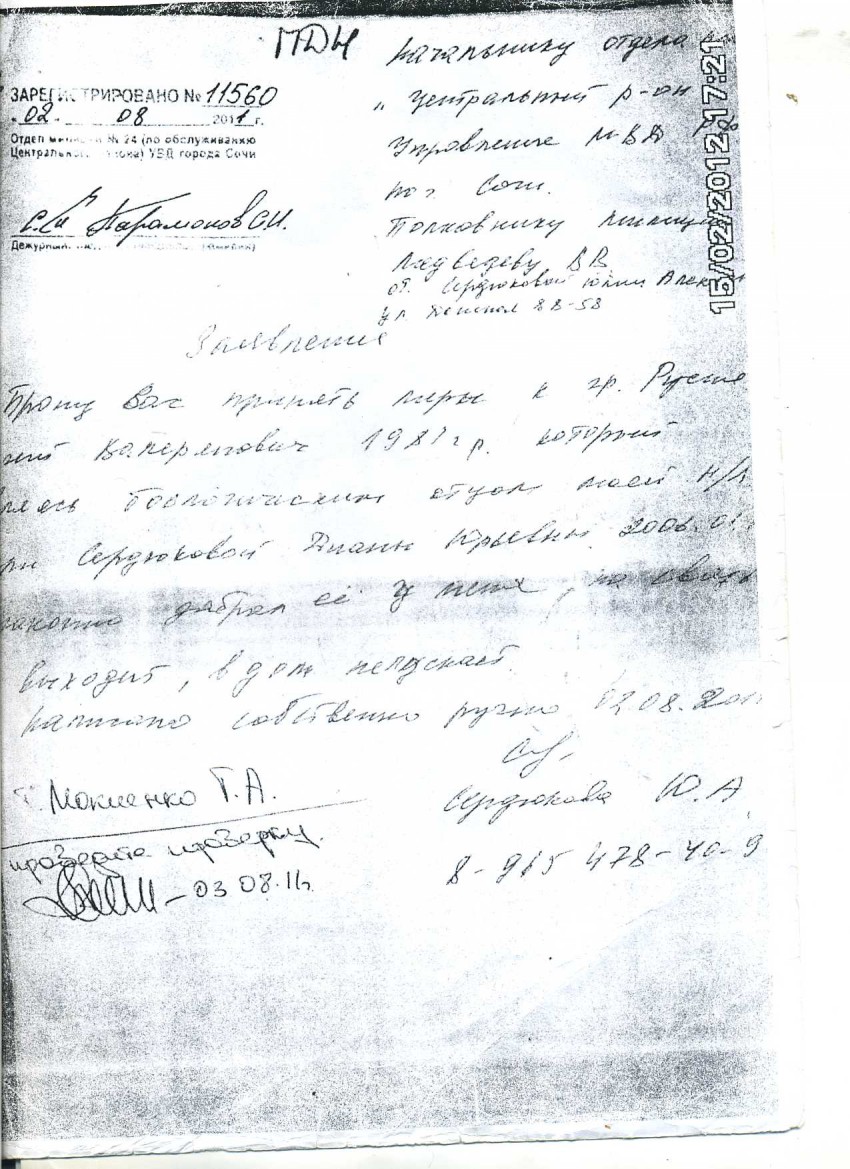 ПДН
ЗАРЕГИСТРИРОВАНО № 11560
"02" 08 2011 г.
Отдел милиции № 24 (по обслуживанию
Центрального района) УВД города Сочи
Парамонов С.И.
Дежурный
Начальнику отдела
"Центральный р-он
Управление МВД РФ
по г. Сочи.
Полковнику милиции
Медведеву ВВ
от. Сердюковой Юлии
ул 88-58
15/02/2012 17:21
Заявление
Прошу Вас принять меры к гр.
Валерьевич 198 г.р. который
биологическим отцом моей н/л
Сердюковой Дианы Юрьевны 2006.
забрал её у меня, на
выходит, в дом непускает.
написано собственно ручно 02.08.2011
Сердюкова Ю.А
8-915 478-40-9
Мокиенко Т.А.
проведите проверку.
03 08.11г